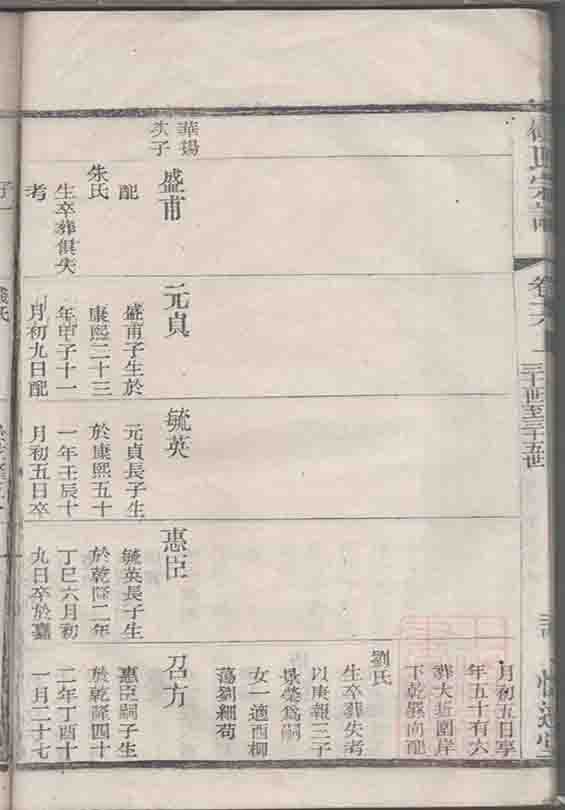 卷六 一
三十世至三十五世
月初五日享
年五十有六
葬大近圍岸
劉氏
生卒葬失考
以庚報三子
景榮為嗣
女一適西柳
蕩劉細苟
華揚
次子
盛甫
配
朱氏
生卒葬俱失
考
元貞
盛甫子生於
康熙二十三
年甲子十一
月初九日配
毓英
元貞長子生
於康熙五十
一年壬辰十
月初五日卒
惠臣
毓英長子生
於乾隆二年
丁巳六月初
九日卒於嘉
召方
惠臣嗣子生
於乾隆四十
二年丁酉十
一月二十七